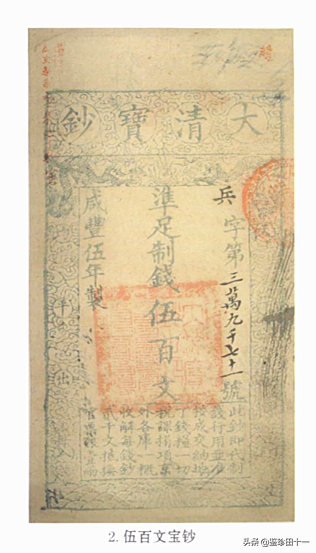 大清寶鈔
兵字第三萬九千七十一號
準足制錢伍百文
咸豐伍年製
此鈔即代制
錢行用並准
按成交納地
丁錢糧一切
稅課捐項京
外各庫一概
收解每錢鈔
貳千文抵換
官票銀壹兩
2. 伍百文宝钞
头条 @鉴珍田十一